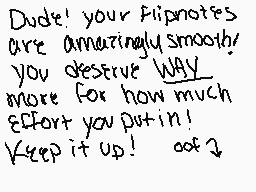 Dude! your flipnotes
are amazingly smooth!
you deserve WAY
more for how much
effort you put in!
Keep it up! oof